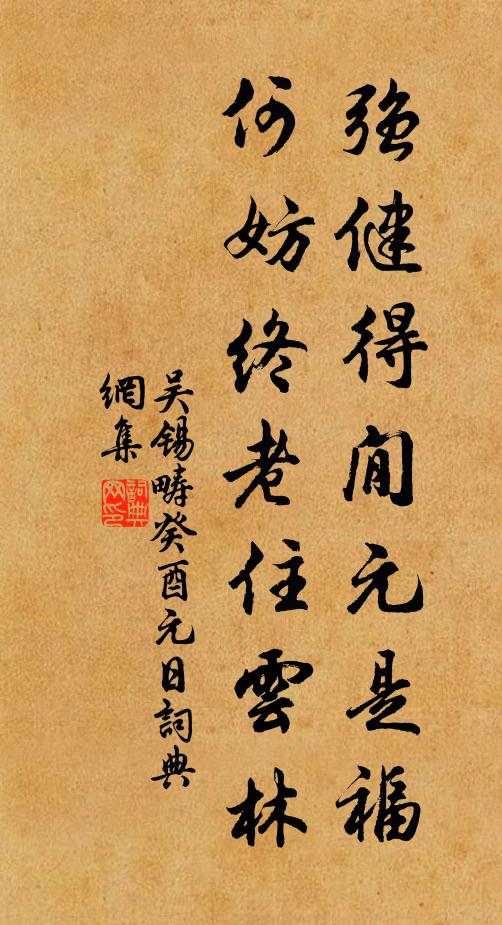 强健得闲元是福
何妨终老住雲林
吴锡畴癸酉元日詞典
網集
詞典網印